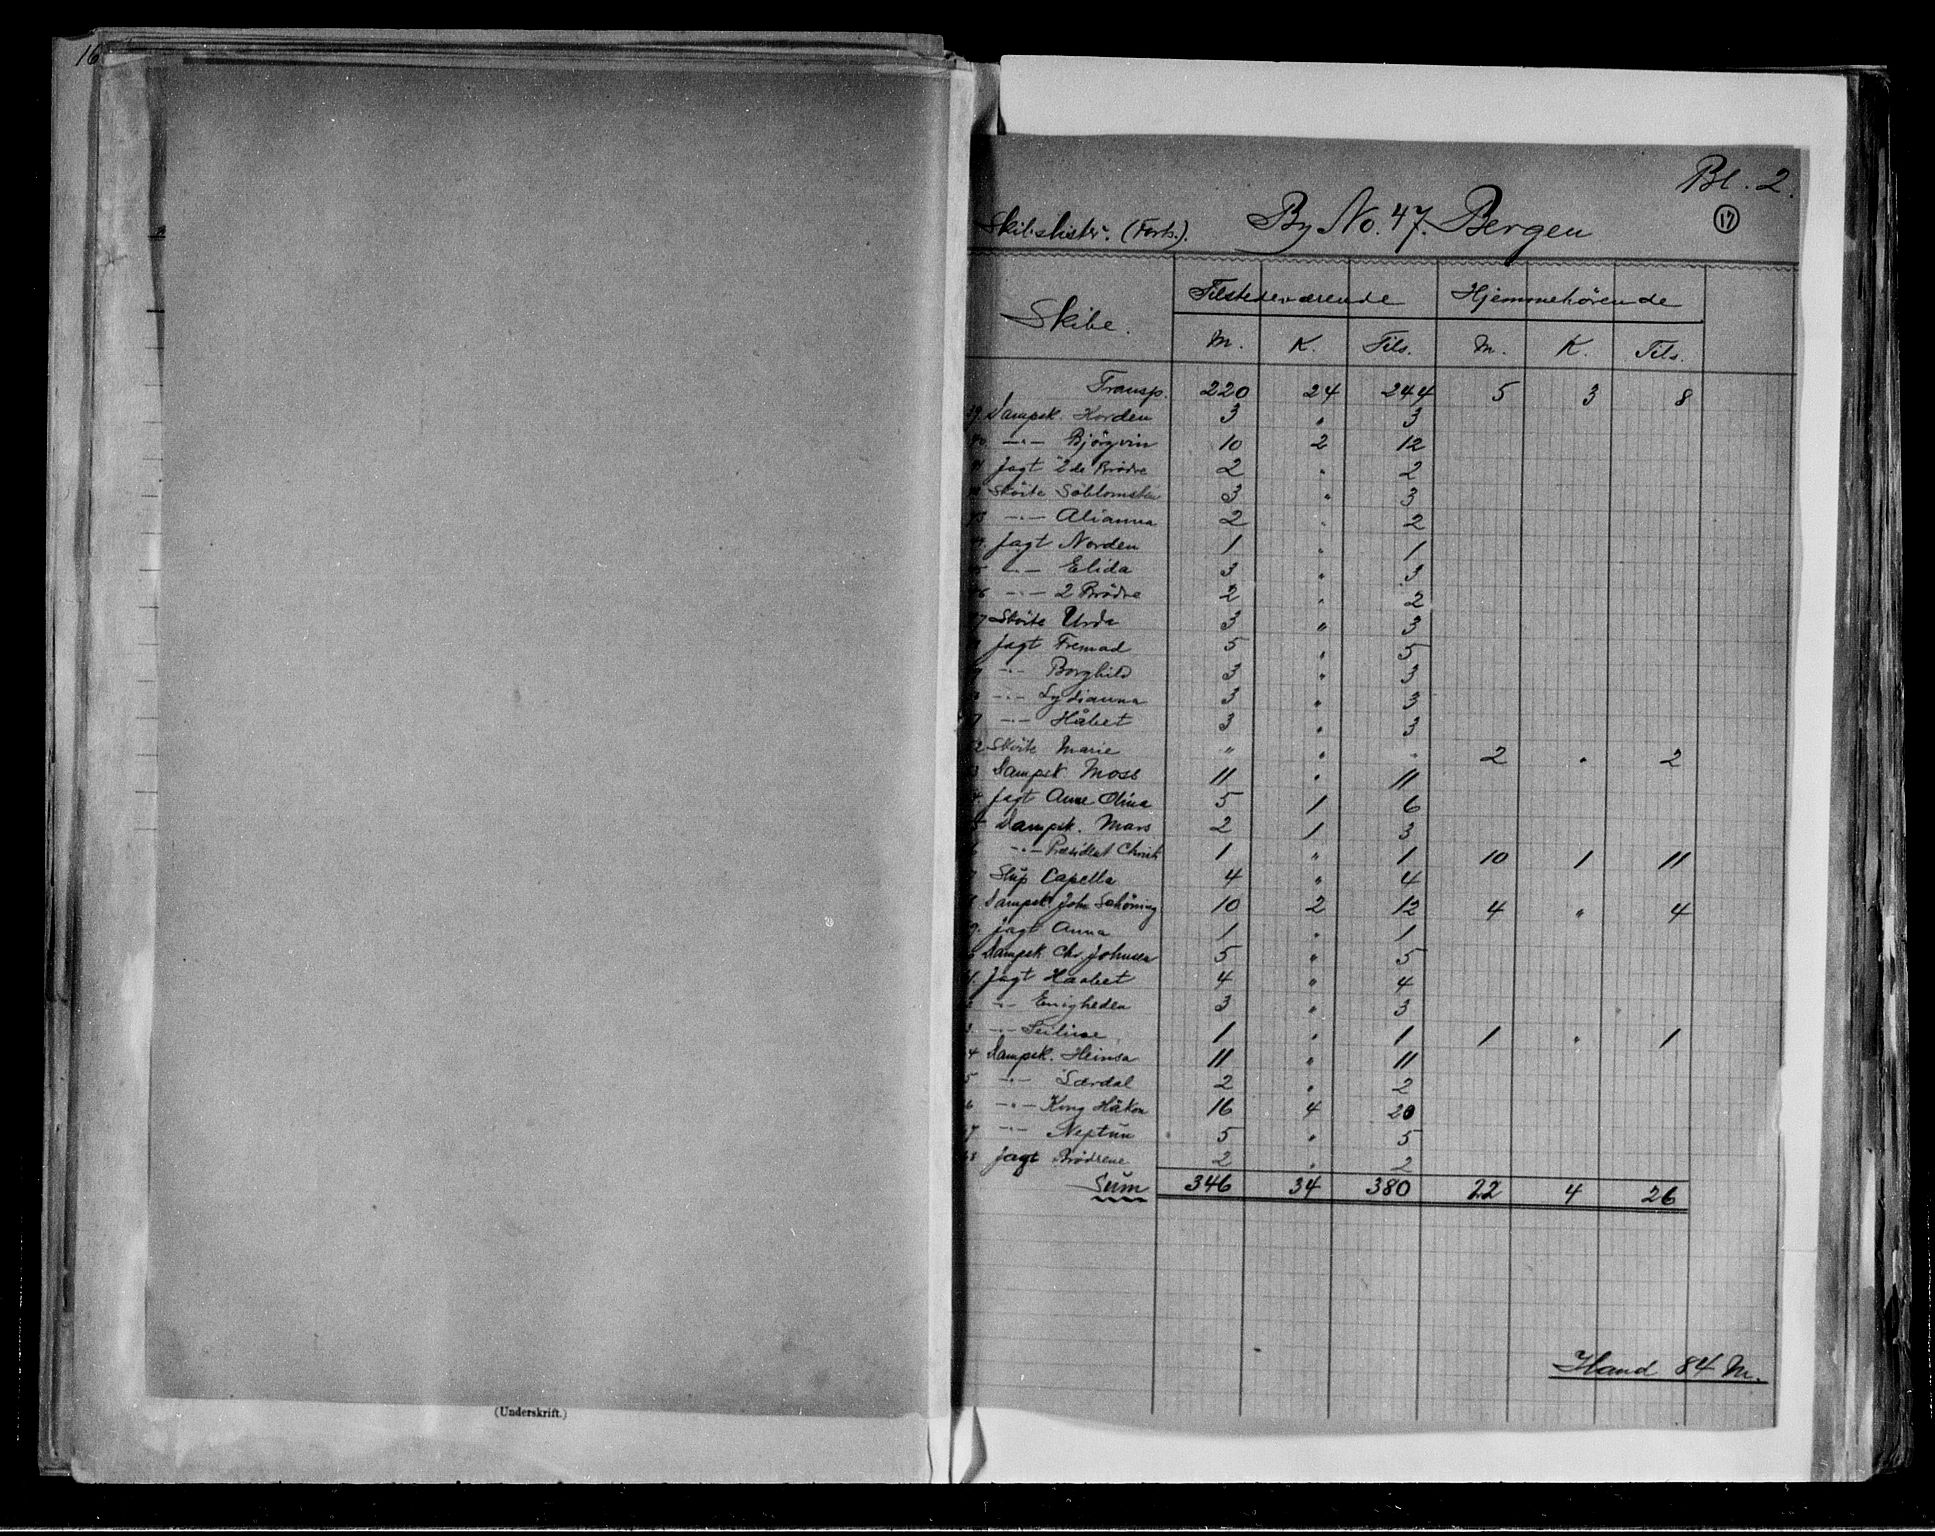 16
(Underskrift.)
Bl. 2.
17
Skibslister. (Forts.). By No. 47. Bergen
Skibe. Tilstedeværende Hjemmehörende
M. K. Tils. M. K. Tils.
Transp. 220 24 244 5 3 8
39. Dampsk. Horden 3 " 3
40 —"— Björgvin 10 2 12
41 Jagt 2de Brødre 2 " 2
Sköite Söblomsten 3 " 3
43 —"— Alianna 2 " 2
Jagt Norden 1 " 1
5 —"— Elida 3 " 3
46 —"— 2 Brödre 2 " 2
7 Sköite Urda 3 " 3
Jagt Fremad 5 " 5
—"— Borghild 3 " 3
—"— Lydianna 3 " 3
—"— Håbet 3 " 3
2 Sköite Marie " " " 2 " 2
3 Dampsk. Moss 11 " 11
4. Jagt Anne Olina 5 1 6
5 Dampsk. Mars 2 1 3
6 —"— Præsident Christie 1 " 1 10 1 11
7 Slup Capella 4 " 4
8 Dampsk. John Schöning 10 2 12 4 " 4
9. Jagt Anna 1 " 1
Dampsk. Chr. Johnsen 5 " 5
1. Jagt Haabet 4 " 4
2 —"— Enigheden 3 " 3
3. —"— 1 " 1 1 " 1
4 Dampsk. Heinsa 11 " 11
5 —"— Lærdal 2 " 2
6 —"— Kong Håkon 16 4 20
7 —"— Neptun 5 " 5
68 Jagt Brödrene 2 " 2
Sum 346 34 380 22 4 26
Hand 84 M.